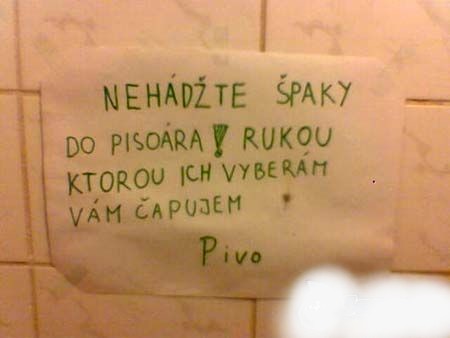 NEHÁDŽTE ŠPAKY
DO PISOÁRA! RUKOU
KTOROU ICH VYBERÁM
VÁM ČAPUJEM
Pivo